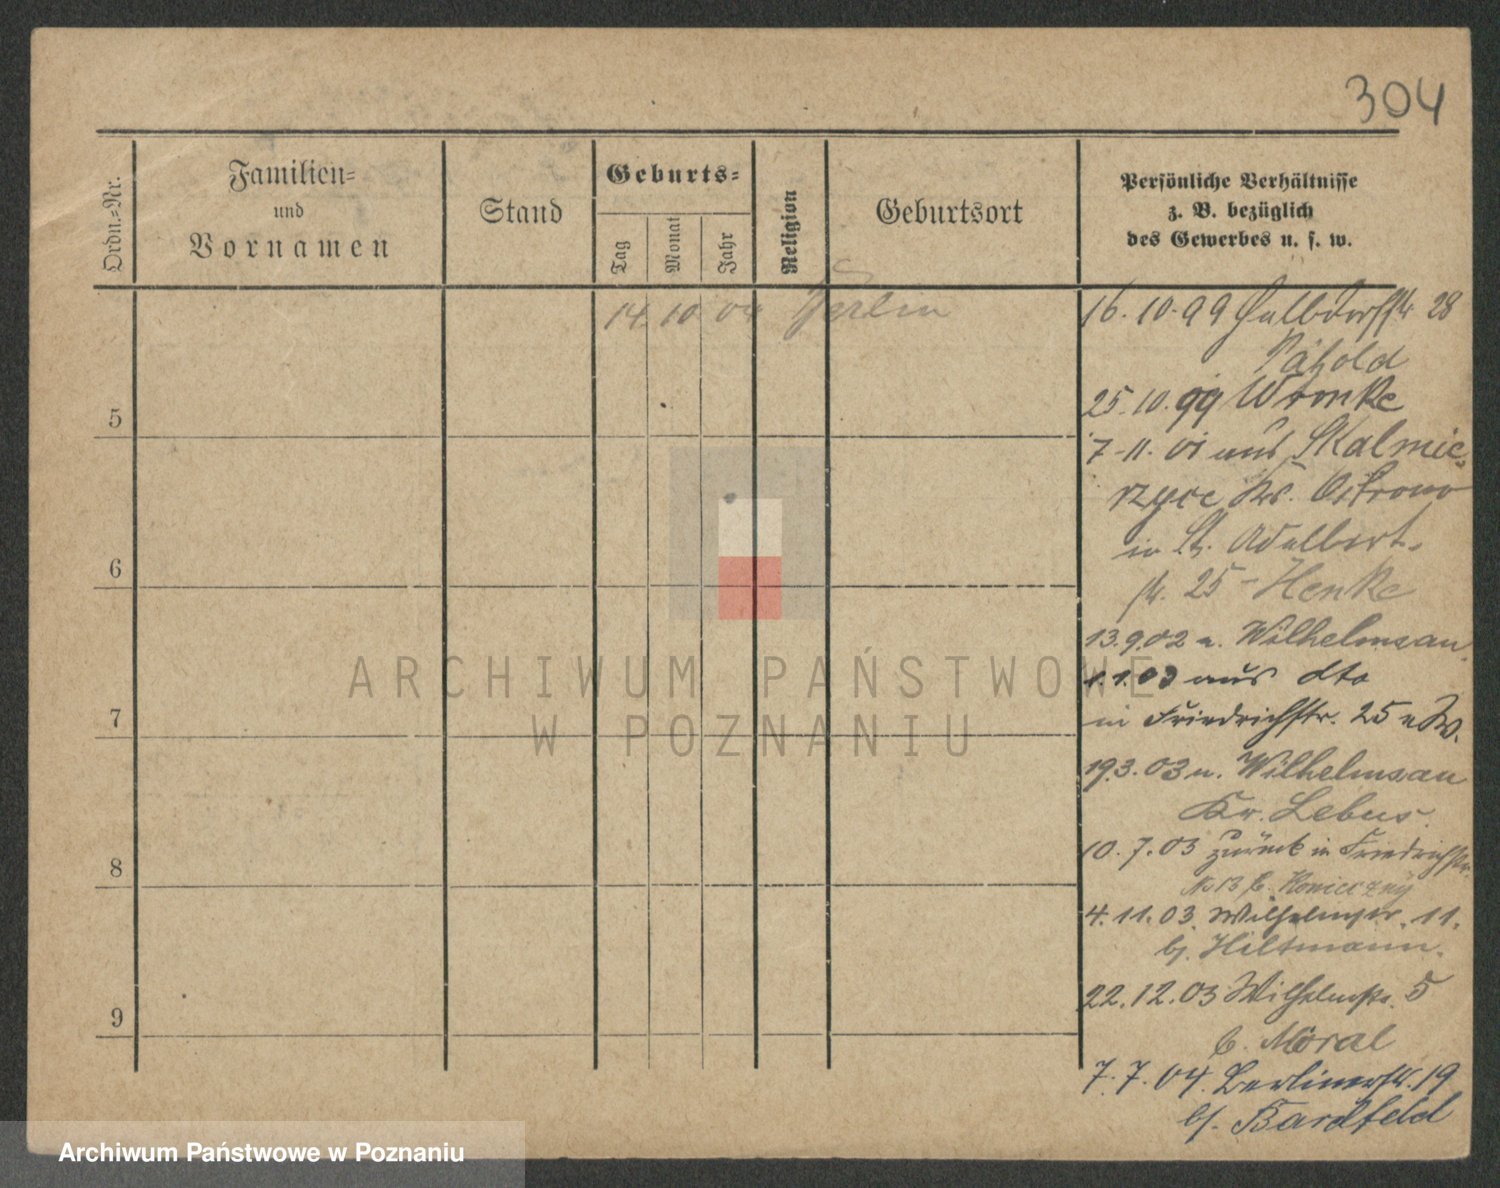 304
Ordn.-Nr.
Familien-
und
Vornamen
Stand
Geburts-
Tag
Monat
Jahr
Religion
Geburtsort
Persönliche Verhältnisse
z. B. bezüglich
des Gewerbes u. s. w.
14 10 04 Berlin
16. 10. 99 Halbdorfstr 28
Pätzold
25. 10. 99 Wronke
7. 11. 01 aus Skalmie-
rzyce Krs. Ostrowo
in St. Adalbert-
str. 25 - Henke
13. 9. 02 n. Wilhelmsau
1. 1. 03 aus dto
in Friedrichstr. 25
19. 3. 03 n. Wilhelmsau
Kr. Lebus
10. 7. 03 zurück in Friedrichstr.
b. Konieczny
4. 11. 03. Wilhelmstr. 11.
bj. Hiltmann.
22. 12. 03 Wilhelmstr. 5
b. Moral
7. 7. 04. Berlinerstr. 19
bj. Bardfeld
5
6
7
8
9
ARCHIWUM PAŃSTWOWE
W POZNANIU
Archiwum Państwowe w Poznaniu